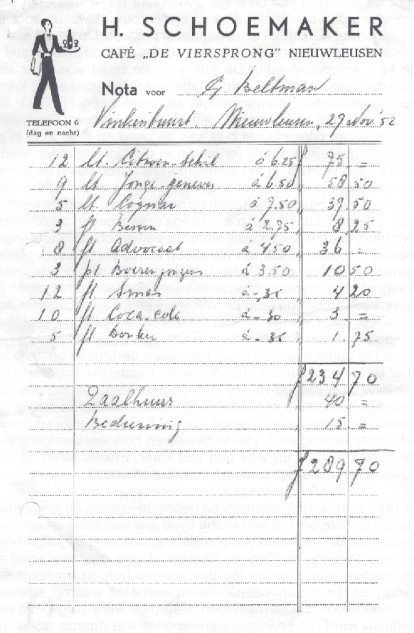 H. SCHOEMAKER
CAFÉ „DE VIERSPRONG” NIEUWLEUSEN
Nota voor G Beltman
TELEFOON 6
(dag en nacht)
Vinkenbuurt. Nieuwleusen, 27 Nov. '52
12 lt. Citroen-Schil à 6.25 75 =
9 lt Jonge-genever à 6.50 58 50
5 lt Cognac à 7.50 37 50
3 fl Bessen à 2.75 8 25
8 fl Advocaat à 4.50 36 -
3 pt Boerenjongens à 3.50 10 50
12 fl Sinas à -.35 4 20
10 fl Coca-cola à -.30 3 =
5 fl Donker à -.35 1.75
f 234 70
Zaalhuur 40 =
Bediening 15 =
f 289 70